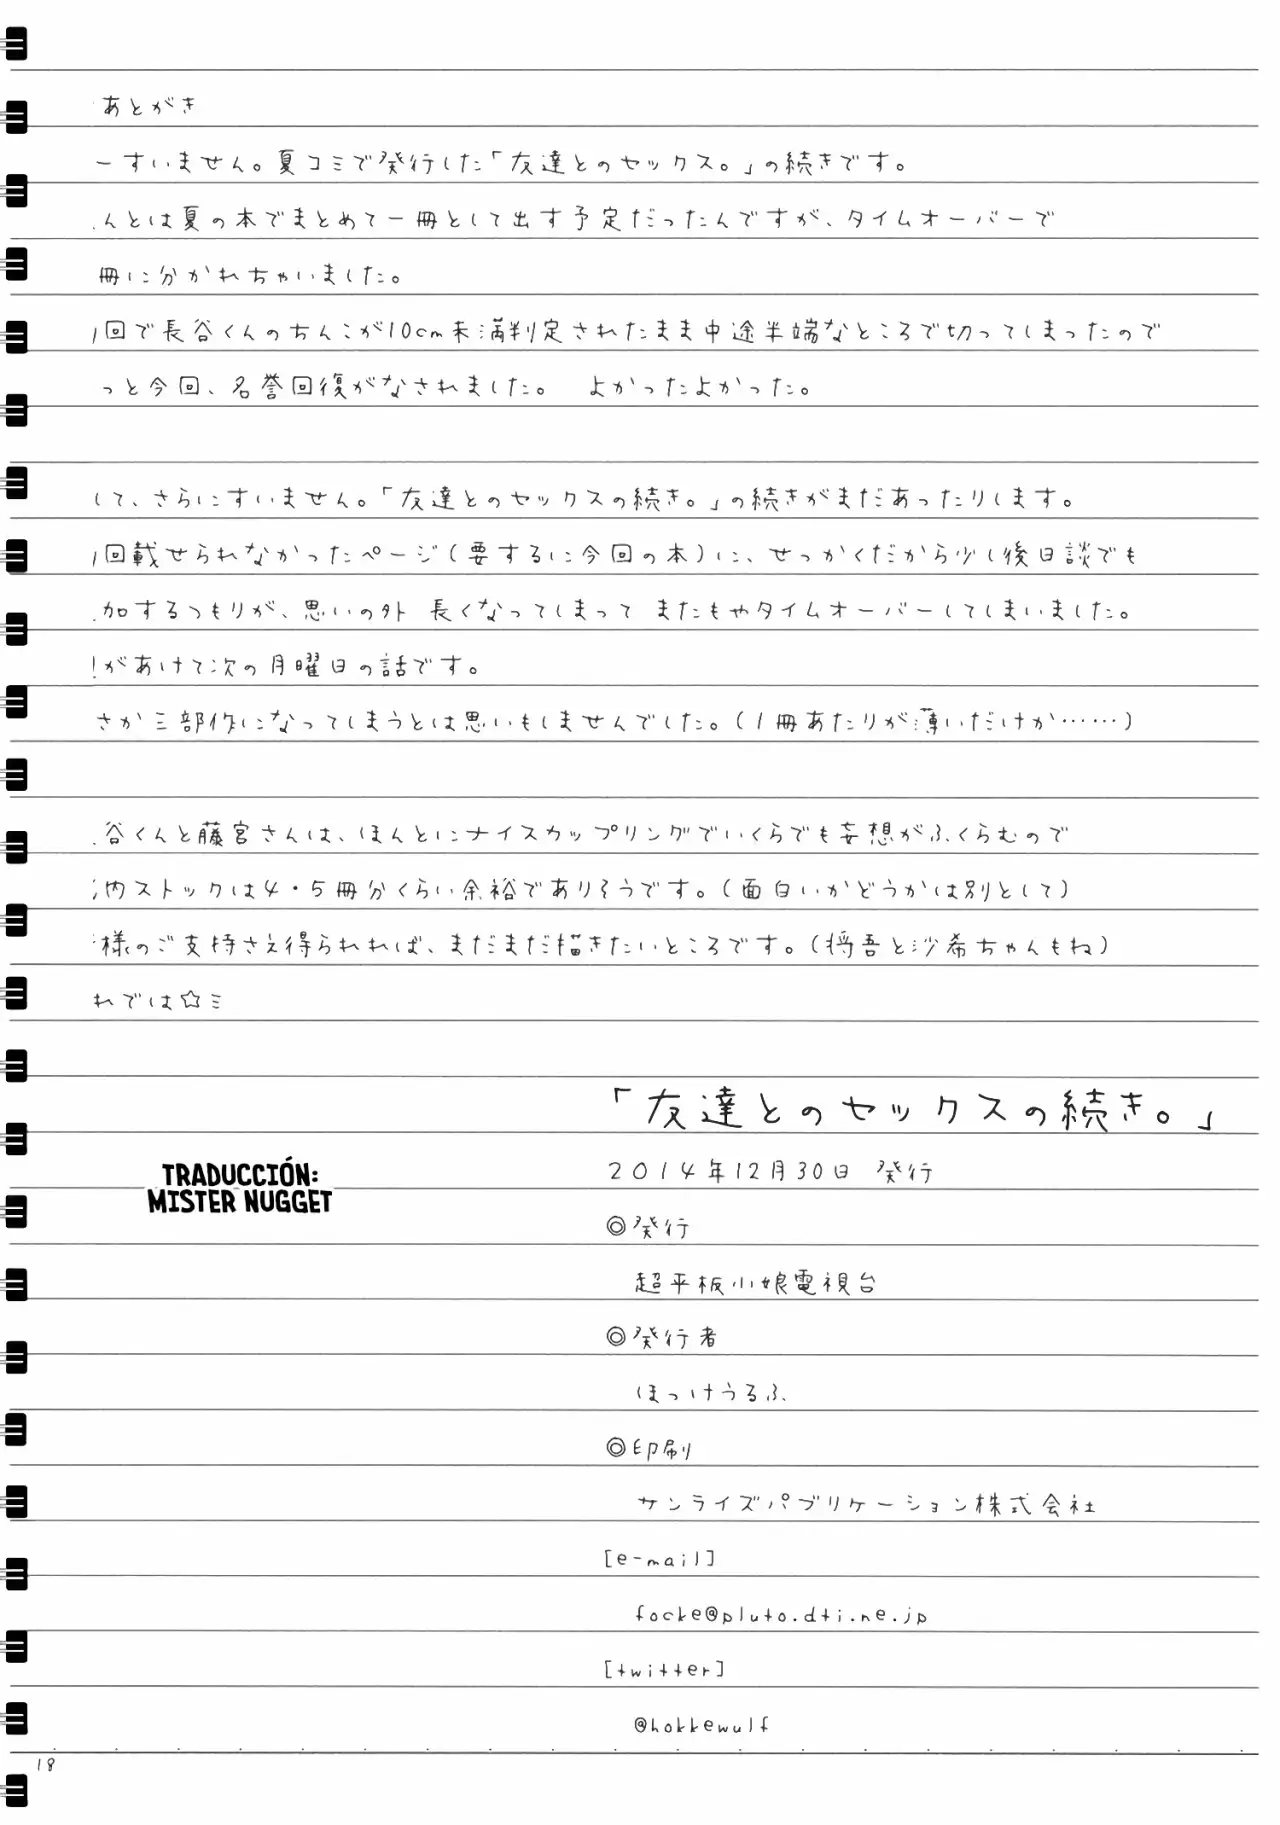 あとがき
ーすいません。夏コミで発行した「友達とのセックス。」の続きです。
んとは夏の本でまとめて一冊として出す予定だったんですが、タイムオーバーで
冊に分かれちゃいました。
回で長谷くんのちんこが10cm未満判定されたまま中途半端なところで切ってしまったので
っと今回、名誉回復がなされました。 よかったよかった。
して、さらにすいません。「友達とのセックスの続き。」の続きがまだあったりします。
回載せられなかったページ(要するに今回の本)に、せっかくだから少し後日談でも
加するつもりが、思いの外 長くなってしまって またもやタイムオーバーしてしまいました。
があけて次の月曜日の話です。
さか三部作になってしまうとは思いもしませんでした。(1冊あたりが薄いだけか……)
谷くんと藤宮さんは、ほんとにナイスカップリングでいくらでも妄想がふくらむので
内ストックは4・5冊分くらい余裕でありそうです。(面白いかどうかは別として)
様のご支持さえ得られれば、まだまだ描きたいところです。(将吾と沙希ちゃんもね)
れでは☆ミ
「友達とのセックスの続き。」
2014年12月30日 発行
◎発行
超平板小娘電視台
◎発行者
ほっけうるふ
◎印刷
サンライズパブリケーション株式会社
[e-mail]
focke@pluto.dti.ne.jp
[twitter]
@hokkewulf
TRADUCCIÓN:
MISTER NUGGET
18